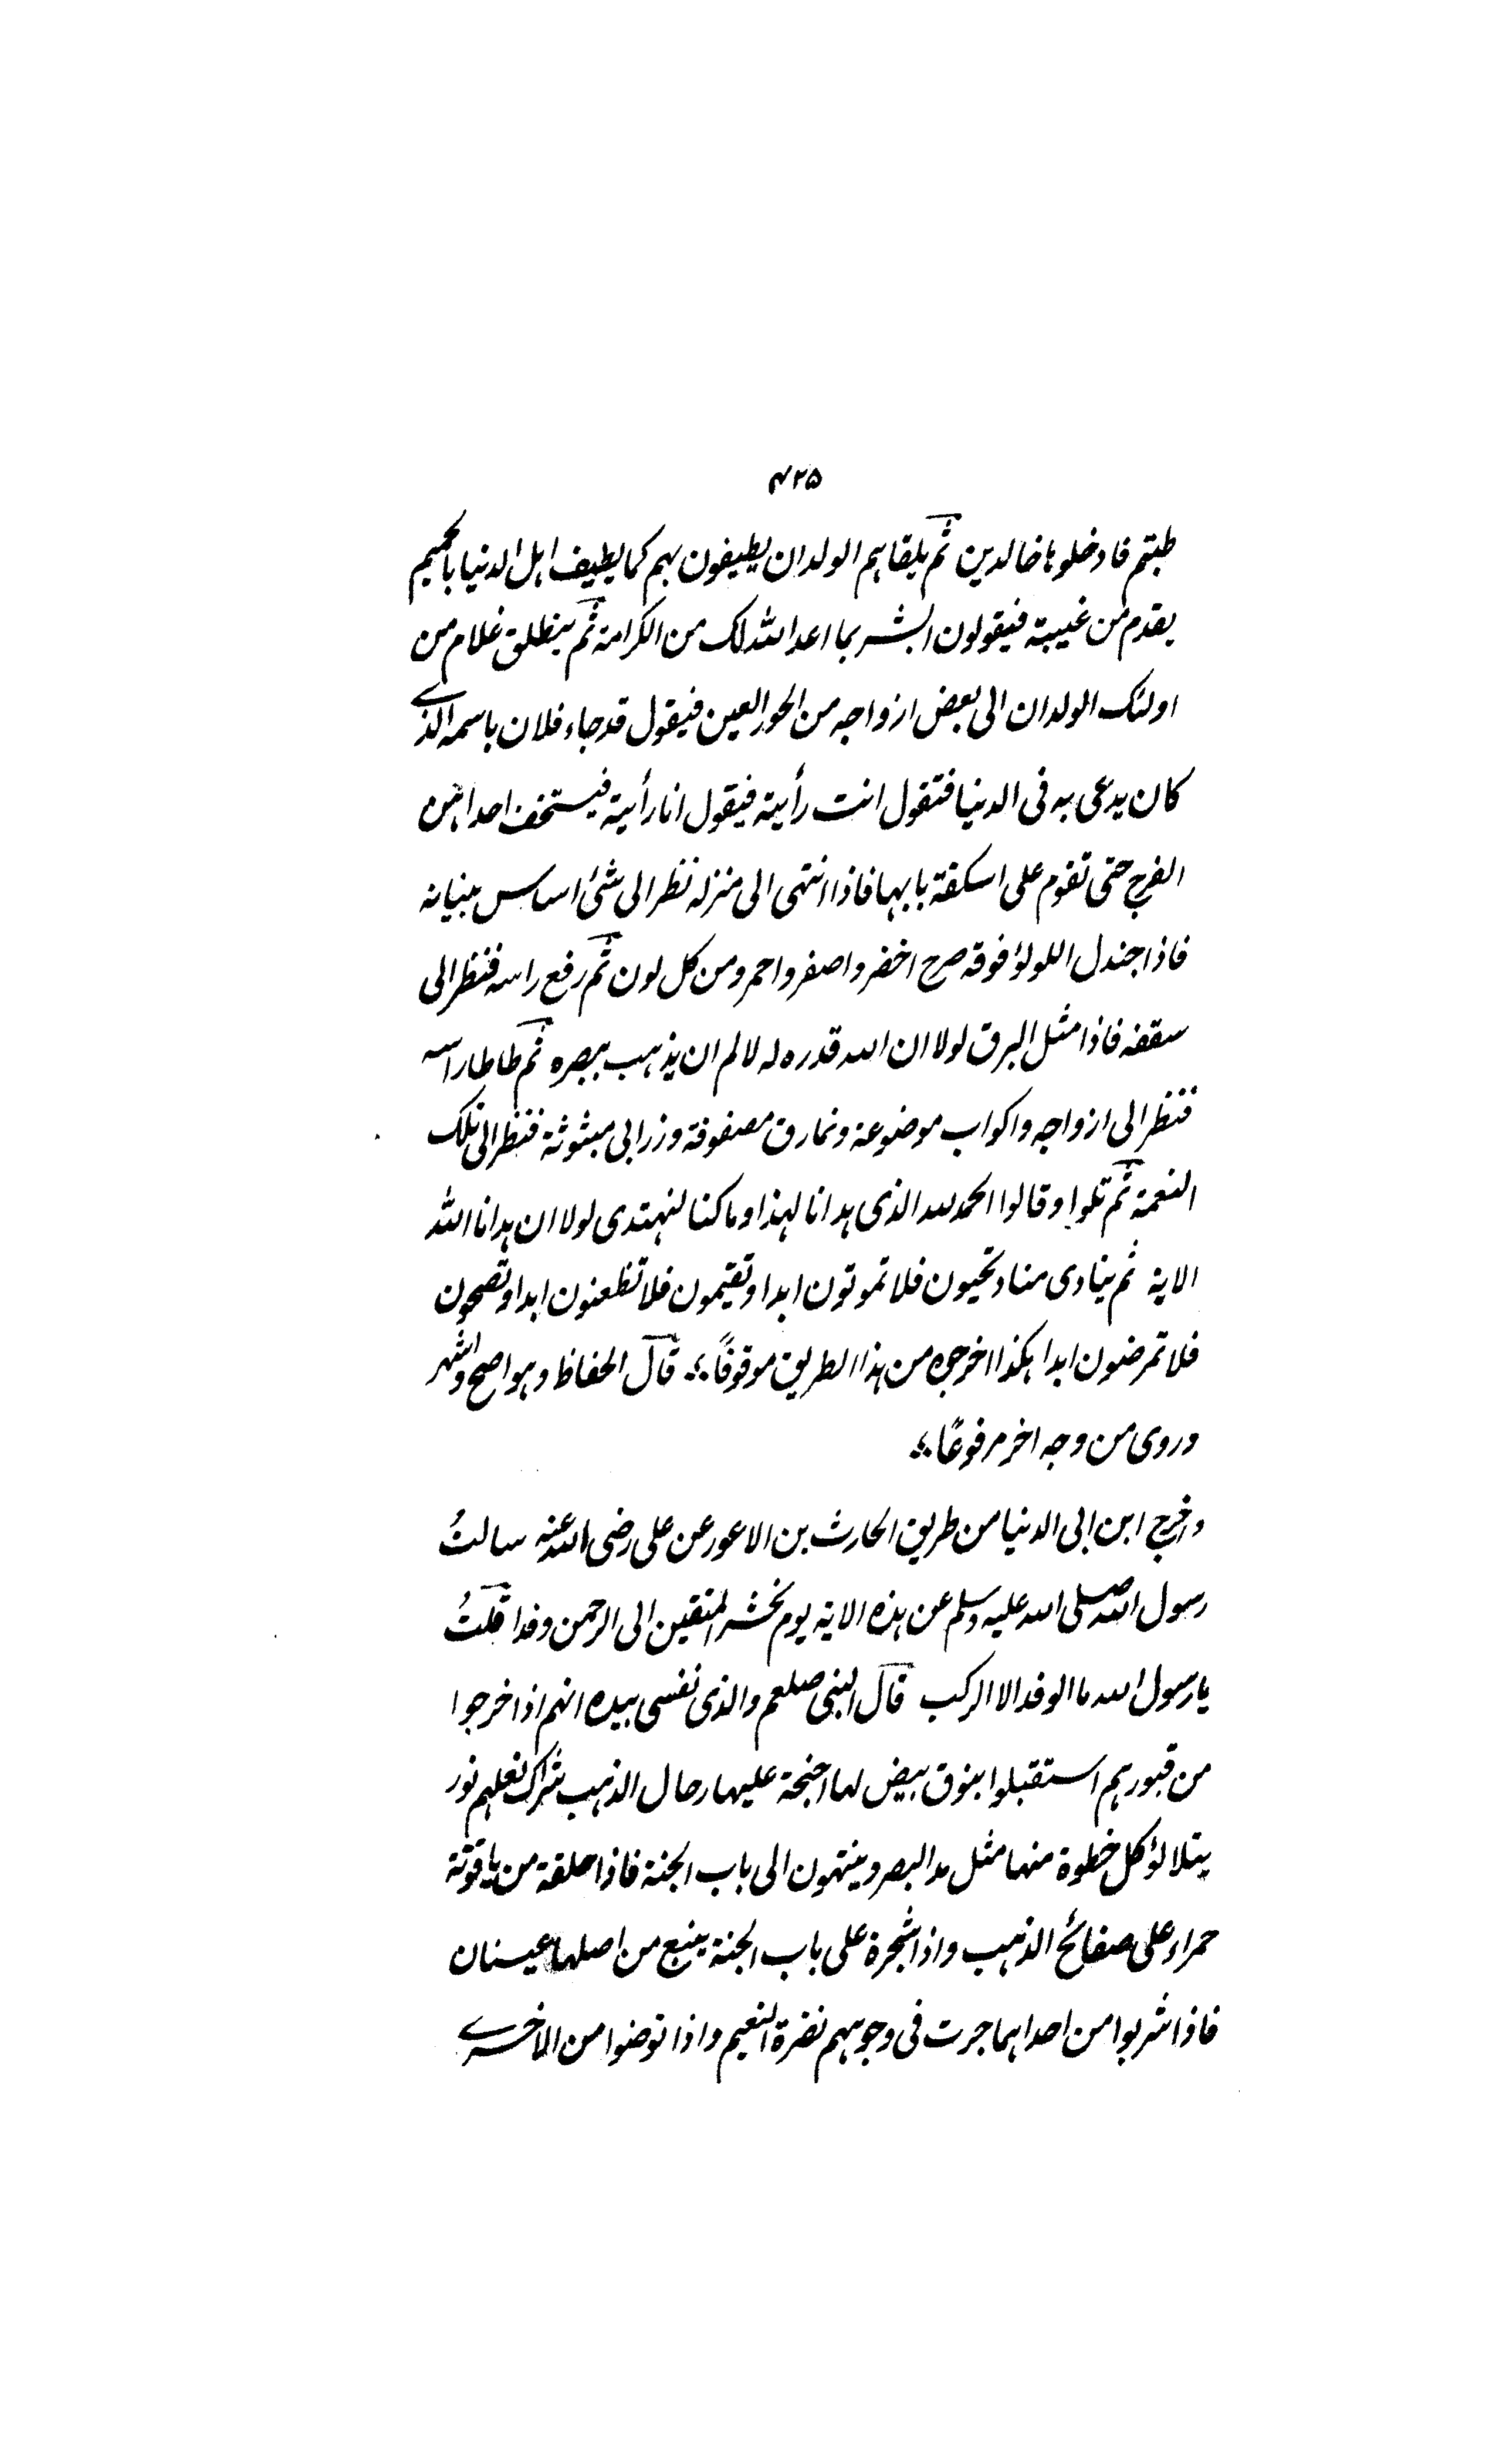 ۴۲۵
طبتم فادخلوها خالدين ثم يلقاهم الولدان يطيفون بهم كما يطيف اهل الدنيا بالحميم
يقدم من غيبة فيقولون ابشر بما اعد الله لك من الكرامة ثم ينطلق غلام من
اولئك الولدان الى بعض ازواجه من الحور العين فيقول قد جاء فلان باسمه الذے
كان يدعى به فى الدنيا فتقول انت رأيته فيقول انا رأيته فيستخف احداهن
الفرح حتى تقوم على اسكفة بابها فاذا انتهى الى منزله نظر الى شئ اساس بنيانه
فاذا جندل اللولؤ فوقه صرح اخضر واصفر واحمر ومن كل لون ثم رفع راسه فنظر الى
سقفه فاذا مثل البرق لولا ان الله قدره له لالم ان يذهب ببصره ثم طاطا راسه
فنظر الى ازواجه واكواب موضوعة ونمارق مصفوفة وزرابى مبثوثة فنظر الى تلك
النعمة ثم تلوا وقالوا الحمد لله الذى هدانا لهذا وما كنا لنهتدى لولا ان هدانا الله
الاية ثم ينادى مناد تحيون فلا تموتون ابدا وتقيمون فلا تظعنون ابدا وتصحون
فلا تمرضون ابدا هكذا اخرجوه من هذا الطريق موقوفاً ؞ قال الحفاظ وهو اصح واشهر
وروى من وجه اخر مرفوعًا ؞
واخرج ابن ابى الدنيا من طريق الحارث بن الاعور عن على رضى الله عنه سالتُ
رسول الله صلى الله عليه وسلم عن هذه الاية يوم نحشر المتقين الى الرحمن وفدا قلتُ
يا رسول الله ما الوفد الا الركب قال النبى صلعم والذى نفسى بيده انهم اذا خرجوا
من قبورهم استقبلوا بنوق بيض لها اجنحة عليها رحال الذهب شراك نعلهم نور
يتلالؤ كل خطوة منها مثل مد البصر وينتهون الى باب الجنة فاذا حلقة من ياقوتة
حمراء على صفائح الذهب واذا شجرة على باب الجنة ينبع من اصلها عينان
فاذا شربوا من احداهما جرت فى وجوههم نضرة النعيم واذا توضئوا من الاخرے